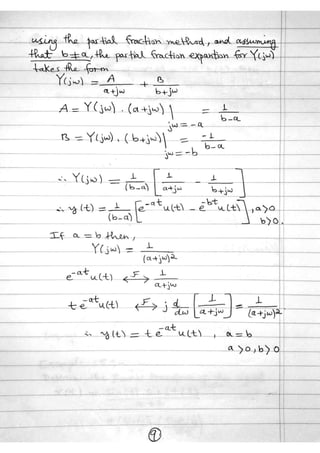 using the partial fraction method, and assuming
that b≠a, the partial fraction expantion for Y(jw)
takes the form
Y(jw) = A/(a+jw) + B/(b+jw)
A = Y(jw) . (a+jw) | jw=-a = 1/(b-a)
B = Y(jw) . (b+jw) | jw=-b = -1/(b-a)
∴ Y(jw) = 1/(b-a) [1/(a+jw) - 1/(b+jw)]
∴ y(t) = 1/(b-a) [e^-at u(t) - e^-bt u(t)], a>0
b>0.
If a=b then,
Y(jw) = 1/(a+jw)2
e^-at u(t) <-F-> 1/(a+jw)
t e^-at u(t) <-F-> j d/dw [1/(a+jw)] = 1/(a+jw)2.
∴ y(t) = t e^-at u(t) , a=b
a>0, b>0
9